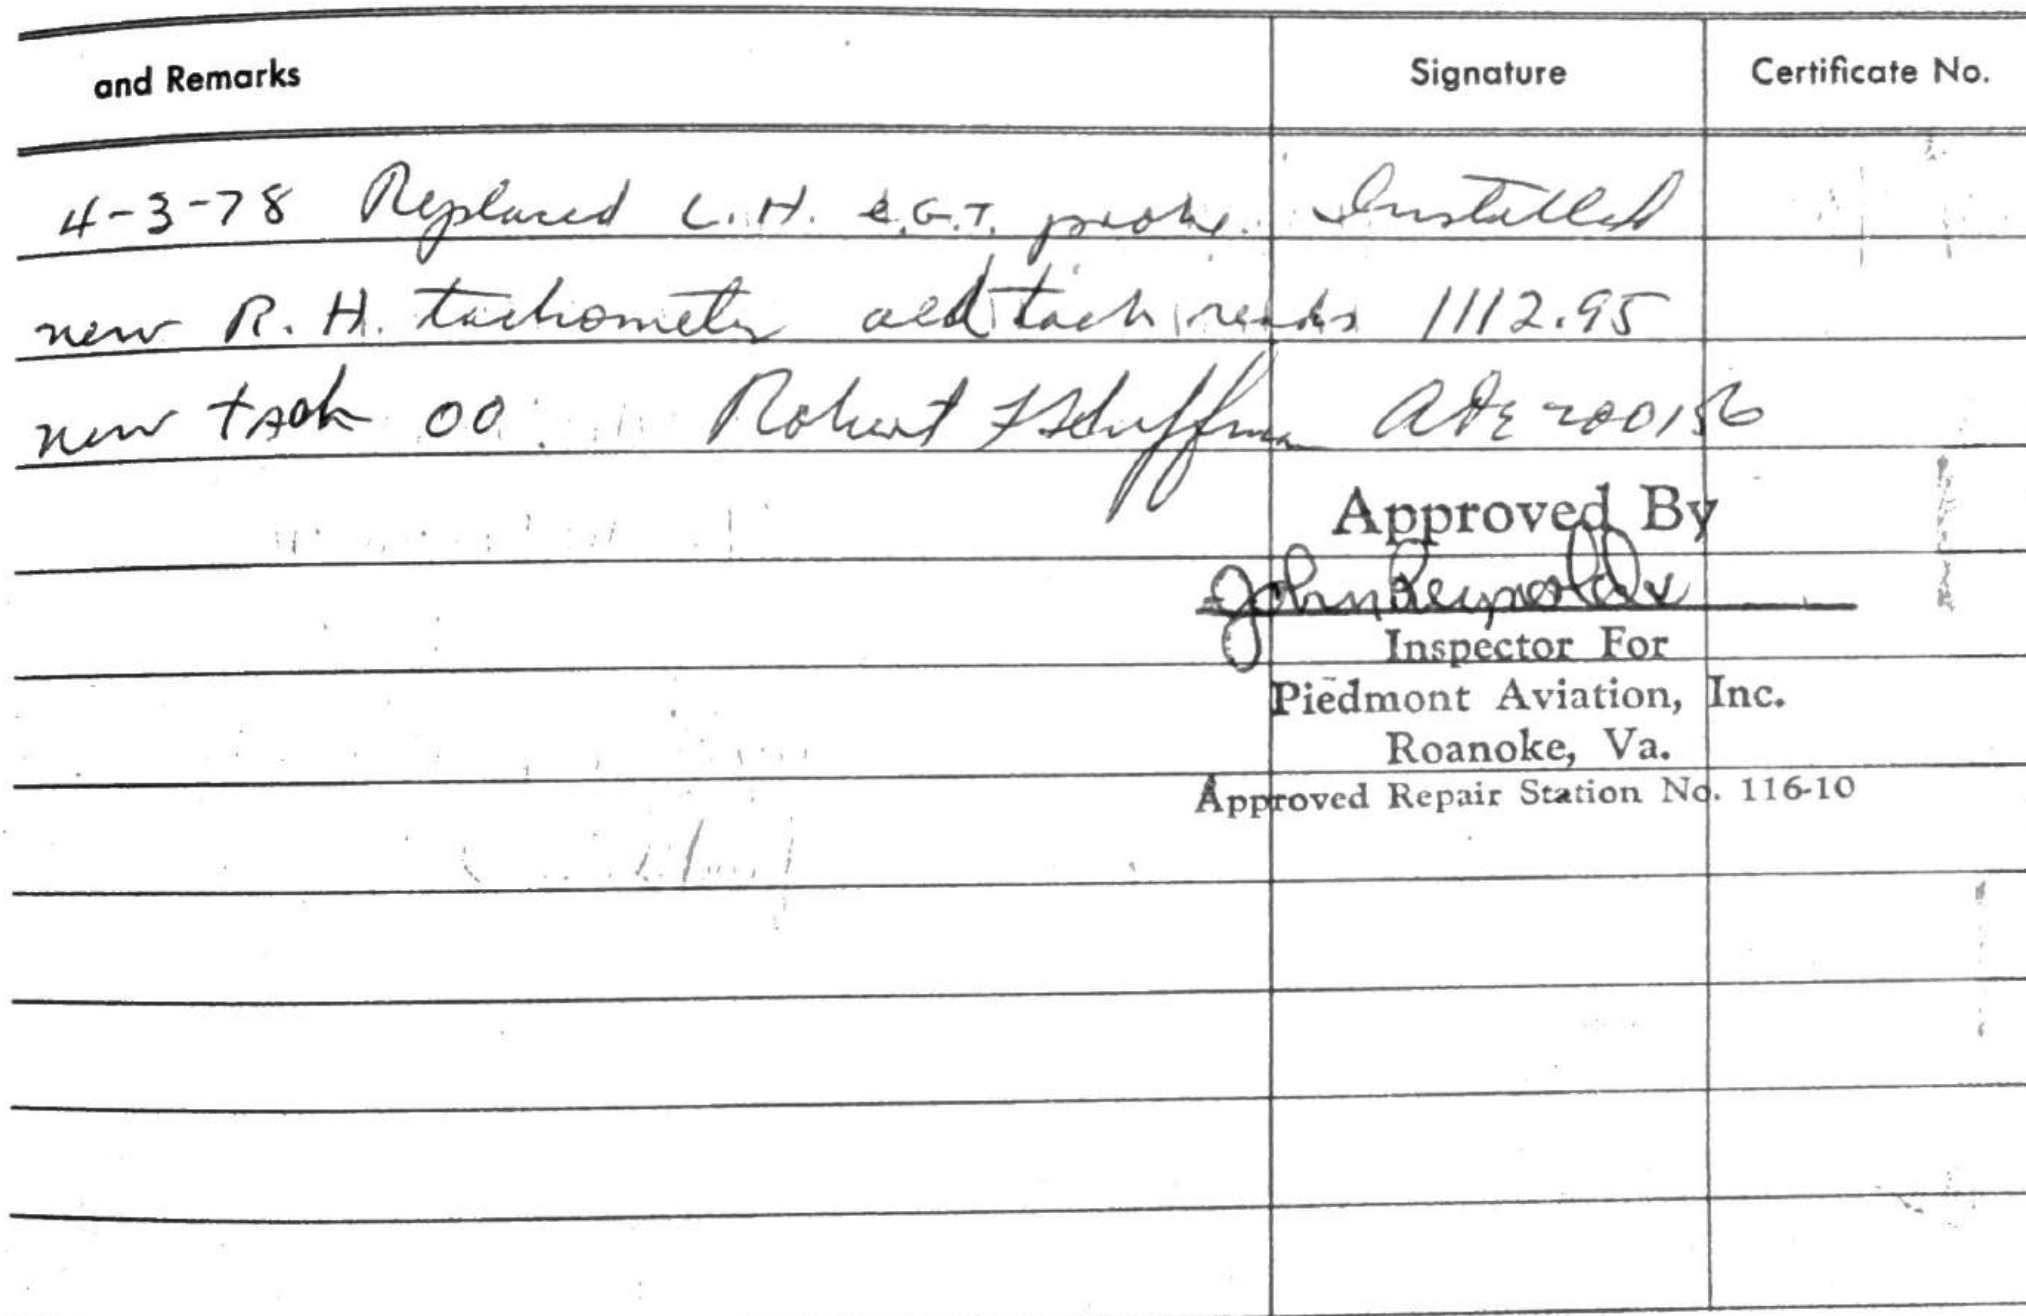 and Remarks Signature Certificate No.
4-3-78 Replaced L.H. E.G.T. probe. Installed
new R.H. tachometer old tach reads 1112.95
new tach 00 Robert F Huffman
Approved By
John Reynolds
Inspector For
Piedmont Aviation, Inc.
Roanoke, Va.
Approved Repair Station No. 116-10